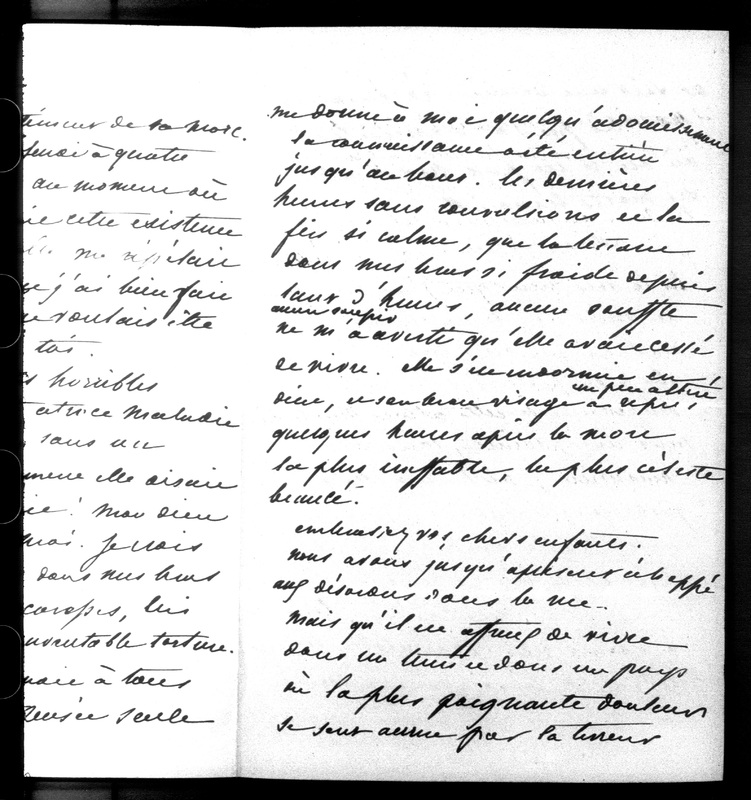 de sa mort.
à quatre
au moment où
cette existence
me répétait
j'ai bien fait
voulais être
tôt.
horribles
maladie
sans un
elle disait
mon dieu
moi. Je vois
dans mes bras
torture.
à tous
seule
me donne à moi quelqu'adoucissement
sa connaissance a été entière
jusqu'au bout. les dernières
heures sans convulsions et la
fin si calme, que la tenant
dans mes bras si froide depuis
tant d'heures, aucun souffle
aucun soupir
ne m'a averti qu'elle avait cessé
de vivre. Elle s'est endormie en
un peu altéré
dieu, et son beau visage a repris,
quelques heures après la mort
la plus ineffable, la plus céleste
beauté.
embrassez vos chers enfants.
nous avons jusqu'à présent échappé
aux désordres dans la rue.
mais qu'il est affreux de vivre
dans un temps et dans un pays
où la plus poignante douleur
se sent accrue par la terreur